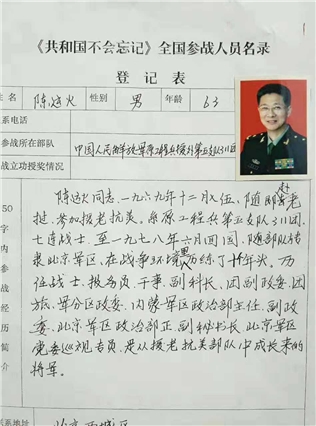 《共和国不会忘记》全国参战人员名录
登记表
姓名 陈达火 性别 男 年龄 63
联系电话
参战所在部队 中国人民解放军原工程兵援外第五支队311团
参战立功授奖情况
50字内参战经历简介
陈达火同志,一九六九年十二月入伍、随部赴老
挝,参加援老抗美。系原工程兵第五支队311团
七连战士,至一九七八年六月回国,随部队转
隶北京军区,在战争环境里历练了十年头。历
任战士、报务员、干事、副科长、团副政委、团
旅、军分区政委、内蒙军区政治部主任、副政
委、北京军区政治部正副秘书长、北京军区
党委巡视专员,是从援老抗美部队中成长来的
将军。
联系地址 北京西城区